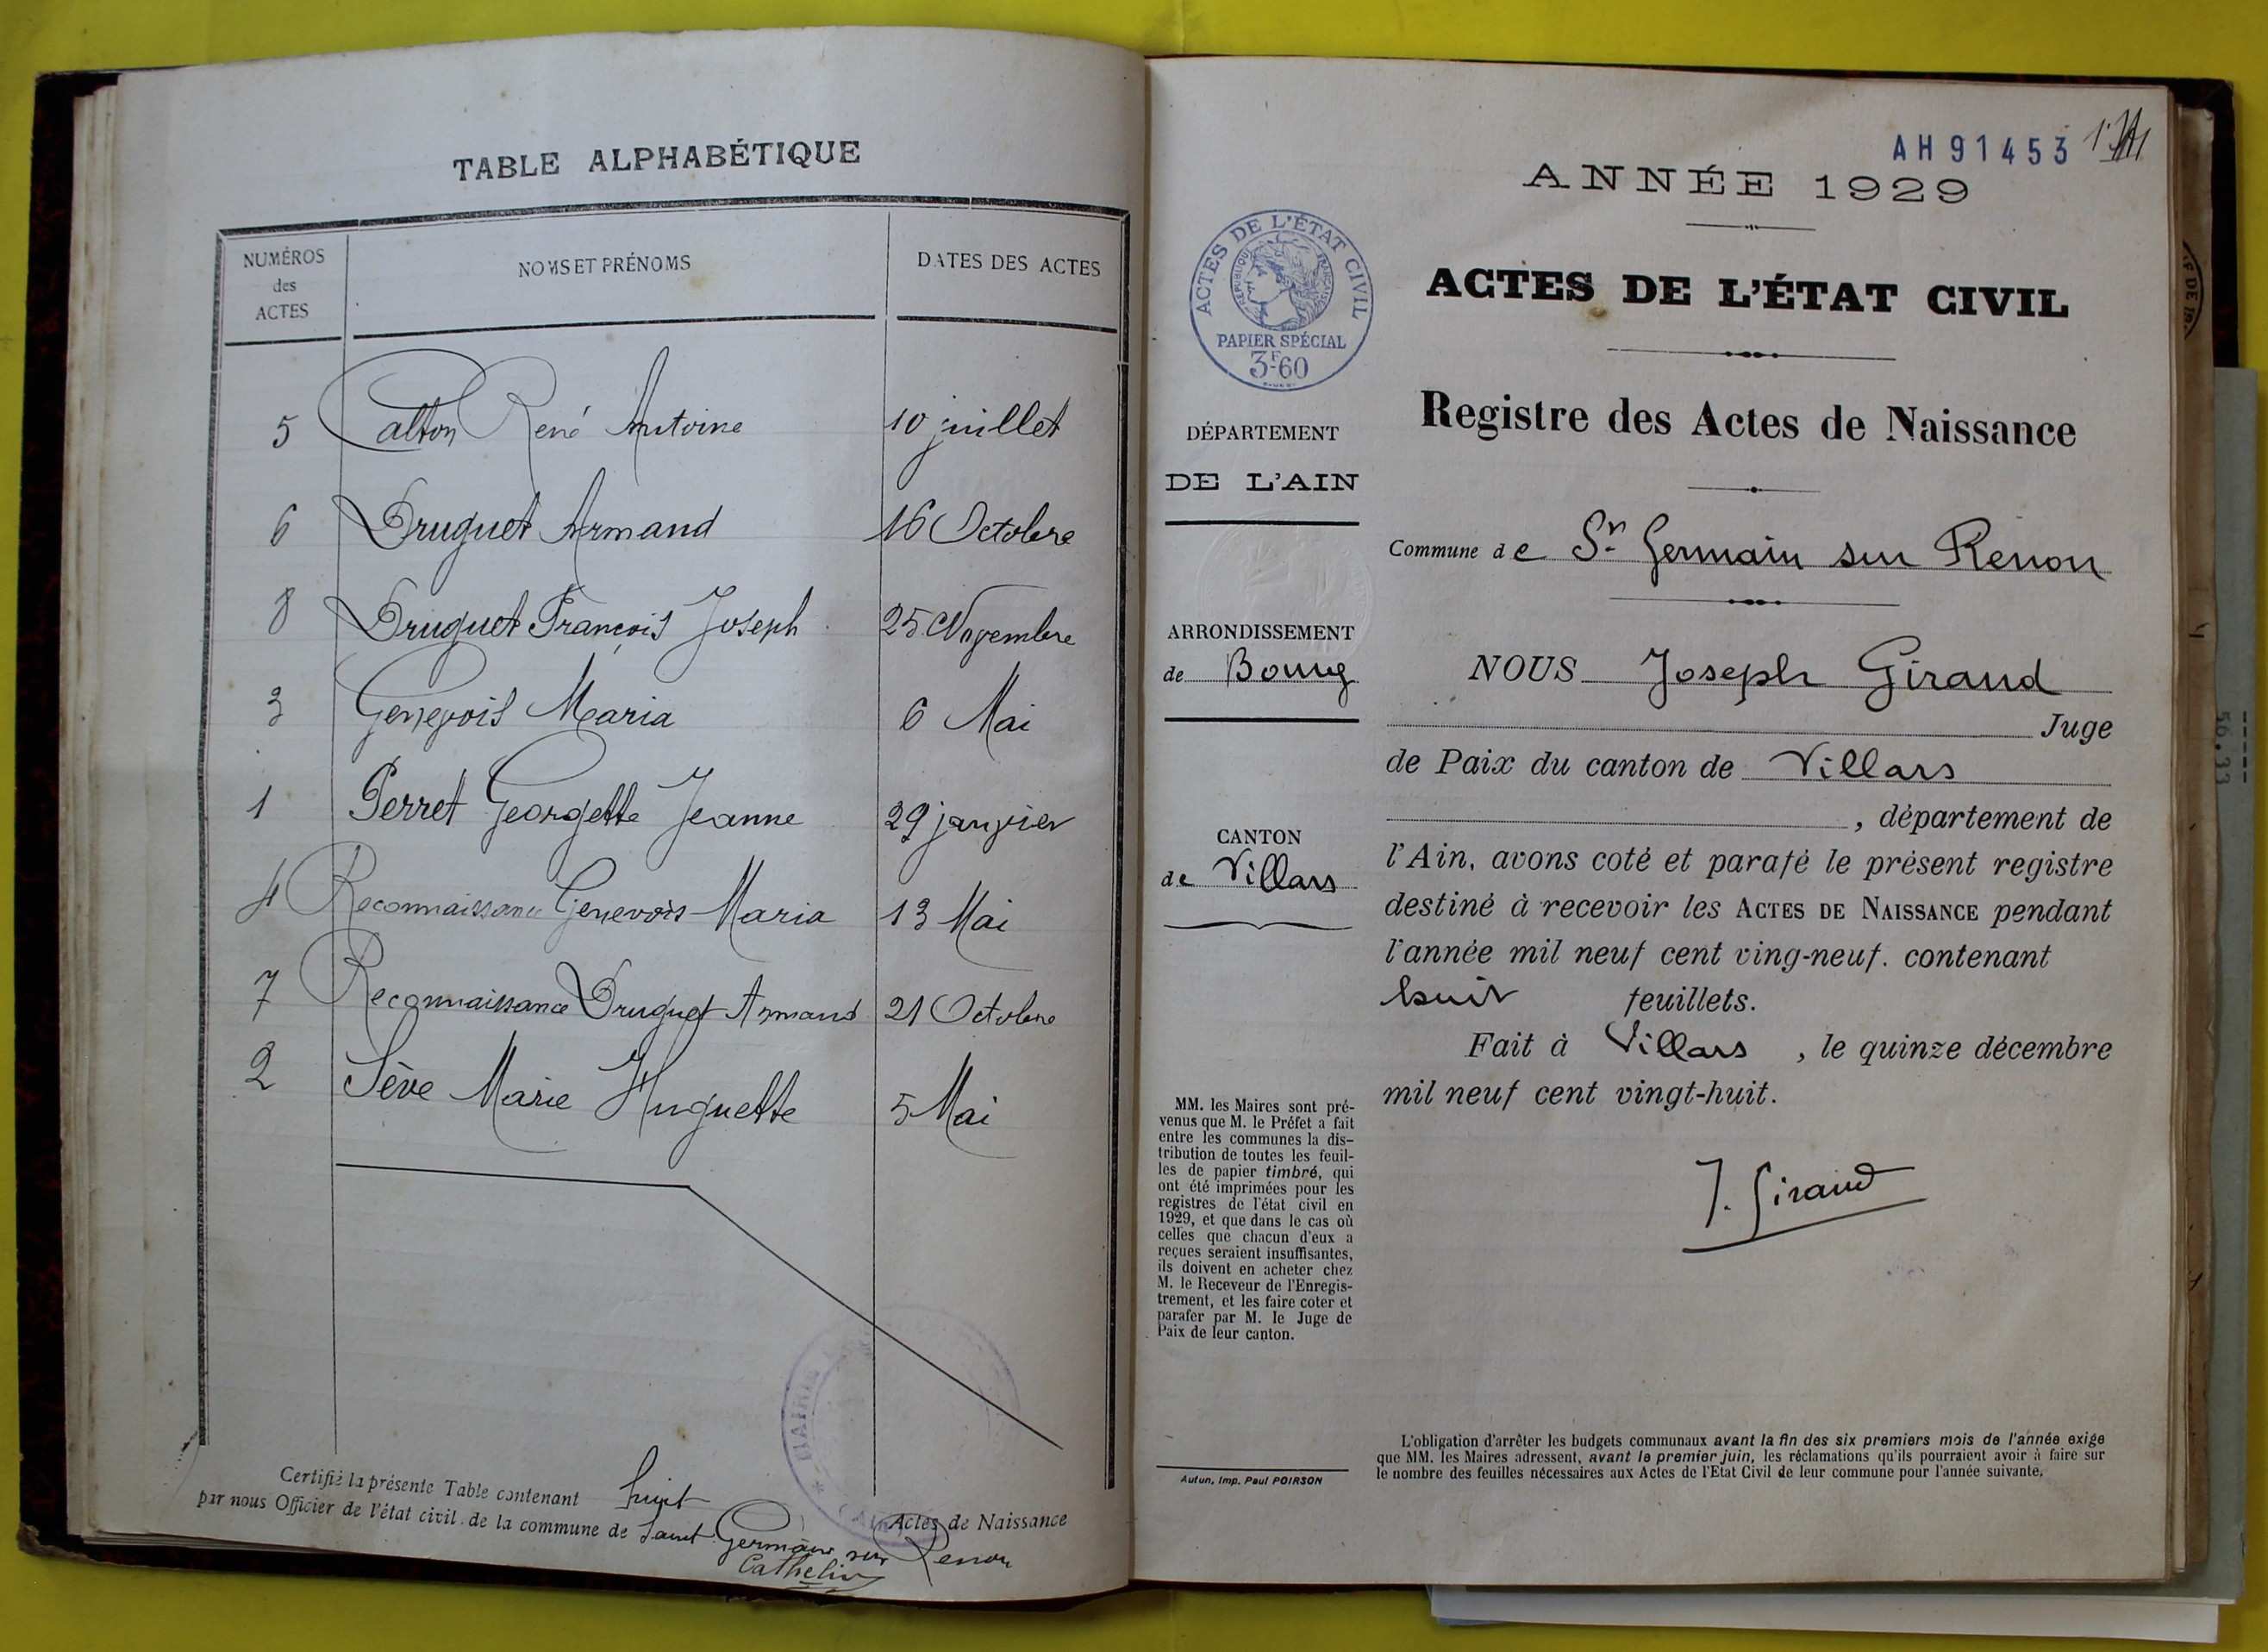 TABLE ALPHABÉTIQUE
NUMÉROS
des
ACTES
NOMS ET PRÉNOMS
DATES DES ACTES
5 Calton René Antoine 10 juillet
6 Druguet Armand 16 Octobre
8 Druguet François Joseph 25 Novembre
3 Genevois Maria 6 Mai
1 Perret Georgette Jeanne 29 janvier
4 Reconnaissance Genevois Maria 13 Mai
7 Reconnaissance Druguet Armand 21 Octobre
2 Sève Marie Huguette 5 Mai
MAIRIE
Certifié la présente Table contenant huit Actes de Naissance
par nous Officier de l'état civil de la commune de Saint Germain sur Renon
Cathelin
AH91453
ANNÉE 1929
ACTES DE L'ÉTAT CIVIL
RÉPUBLIQUE FRANÇAISE
PAPIER SPÉCIAL
3F60
ACTES DE L'ÉTAT CIVIL
Registre des Actes de Naissance
DÉPARTEMENT
DE L'AIN
Commune de St Germain sur Renon
ARRONDISSEMENT
de Bourg
NOUS Joseph Giraud
Juge
de Paix du canton de Villars
, département de
CANTON
de Villars
l'Ain, avons coté et parafé le présent registre
destiné à recevoir les ACTES DE NAISSANCE pendant
l'année mil neuf cent ving-neuf. contenant
huit feuillets.
Fait à Villars , le quinze décembre
mil neuf cent vingt-huit.
J. Giraud
MM. les Maires sont pré-
venus que M. le Préfet a fait
entre les communes la dis-
tribution de toutes les feuil-
les de papier timbré, qui
ont été imprimées pour les
registres de l'état civil en
1929, et que dans le cas où
celles que chacun d'eux a
reçues seraient insuffisantes,
ils doivent en acheter chez
M. le Receveur de l'Enregis-
trement, et les faire coter et
parafer par M. le Juge de
Paix de leur canton.
Autun, Imp. Paul POIRSON
L'obligation d'arrêter les budgets communaux avant la fin des six premiers mois de l'année exige
que MM. les Maires adressent, avant le premier juin, les réclamations qu'ils pourraient avoir à faire sur
le nombre des feuilles nécessaires aux Actes de l'Etat Civil de leur commune pour l'année suivante.